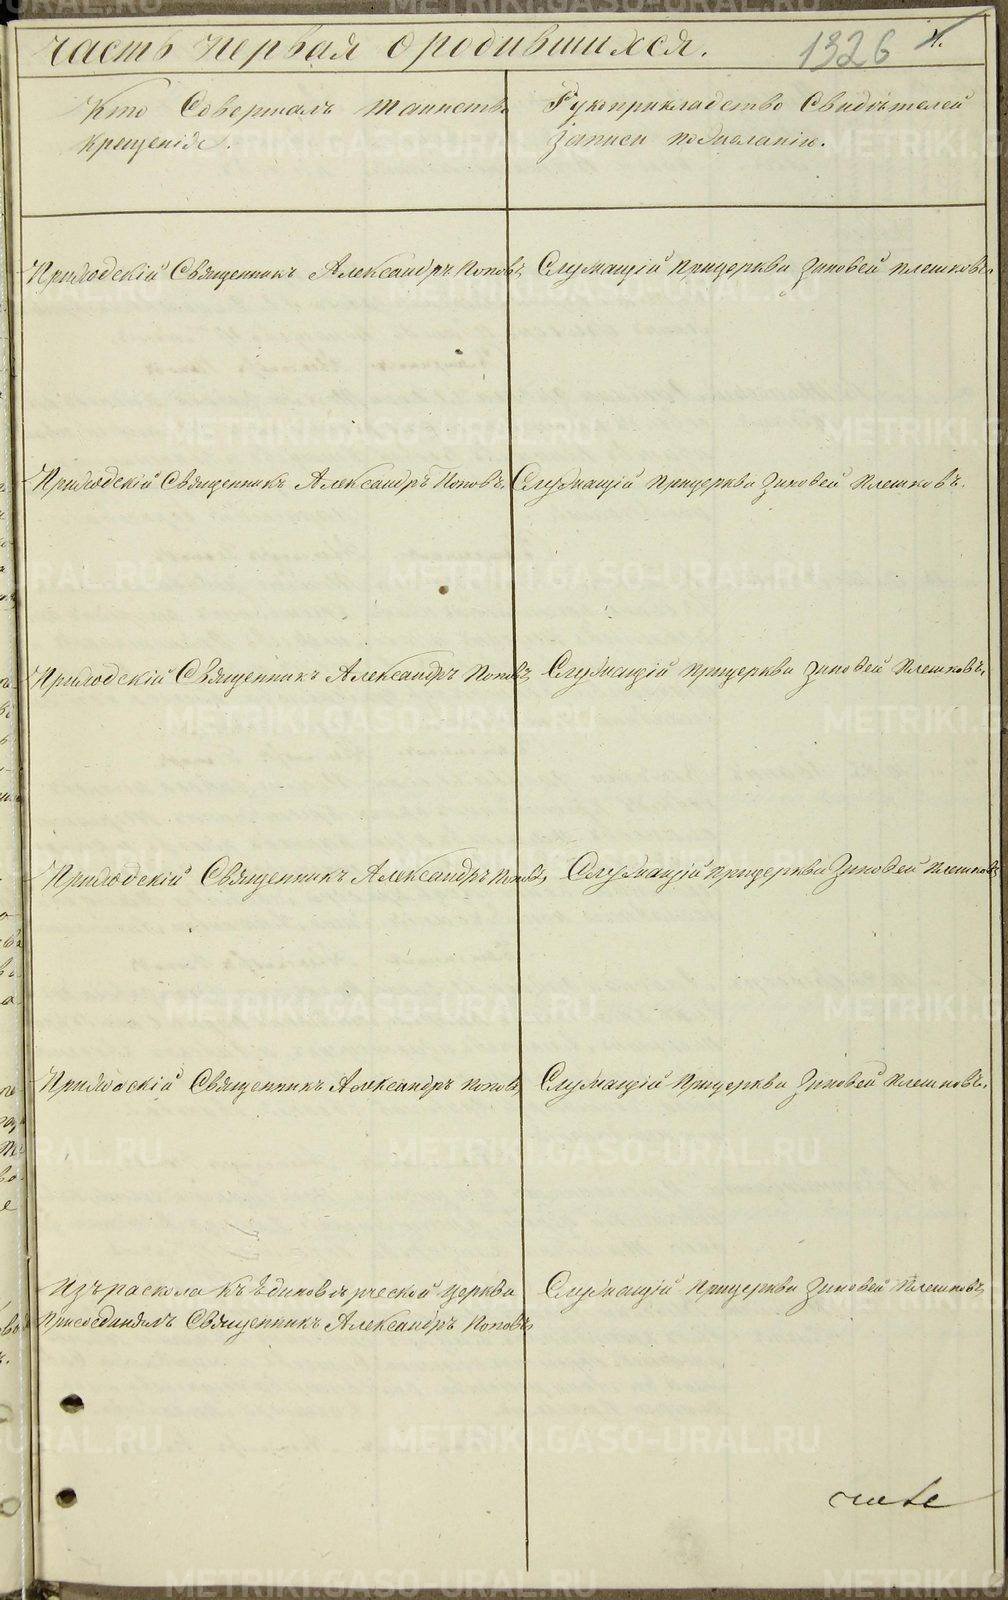 часть первая о родившихся.
1326
Кто Совершалъ таинство
Крещенія.
Рукоприкладство Свидѣтелей
Записи пожеланію.
Приходскій Священникъ Александръ Поповъ,
Служащій прицеркви Зиновей Плешковъ.
Приходскій Священникъ Александръ Поповъ,
Служащій прицеркви Зиновей Плешковъ.
Приходскій Священникъ Александръ Поповъ,
Служащій прицеркви Зиновей Плешковъ.
Приходскій Священникъ Александръ Поповъ,
Служащій прицеркви Зиновей Плешковъ
Приходскій Священникъ Александръ Поповъ,
Служащій прицеркви Зиновей Плешковъ.
Изъ раскола къ Единовѣрческой церкви
Присоединялъ Священникъ Александръ Поповъ,
Служащій прицеркви Зиновей Плешковъ,
METRIKI.GASO-URAL.RU